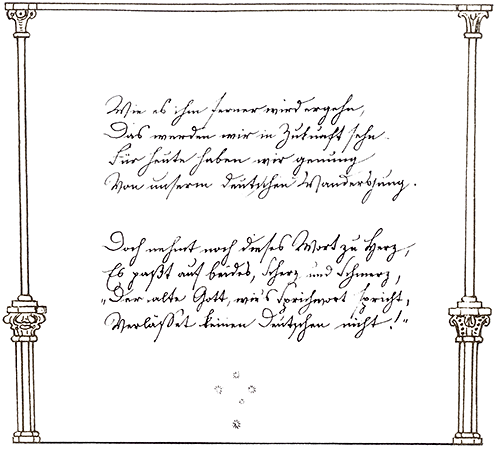 Wie es ihm ferner wird ergehn,
Das werden wir in Zukunft sehn.
Für heute haben wir genung
Von unserm deutschen Wandersjung.
Doch nehmt noch dieses Wort zu Herz,
Es paßt auf beides, Scherz und Schmerz,
„Der alte Gott, wie's Sprichwort spricht,
Verlässet keinen Deutschen nicht!“